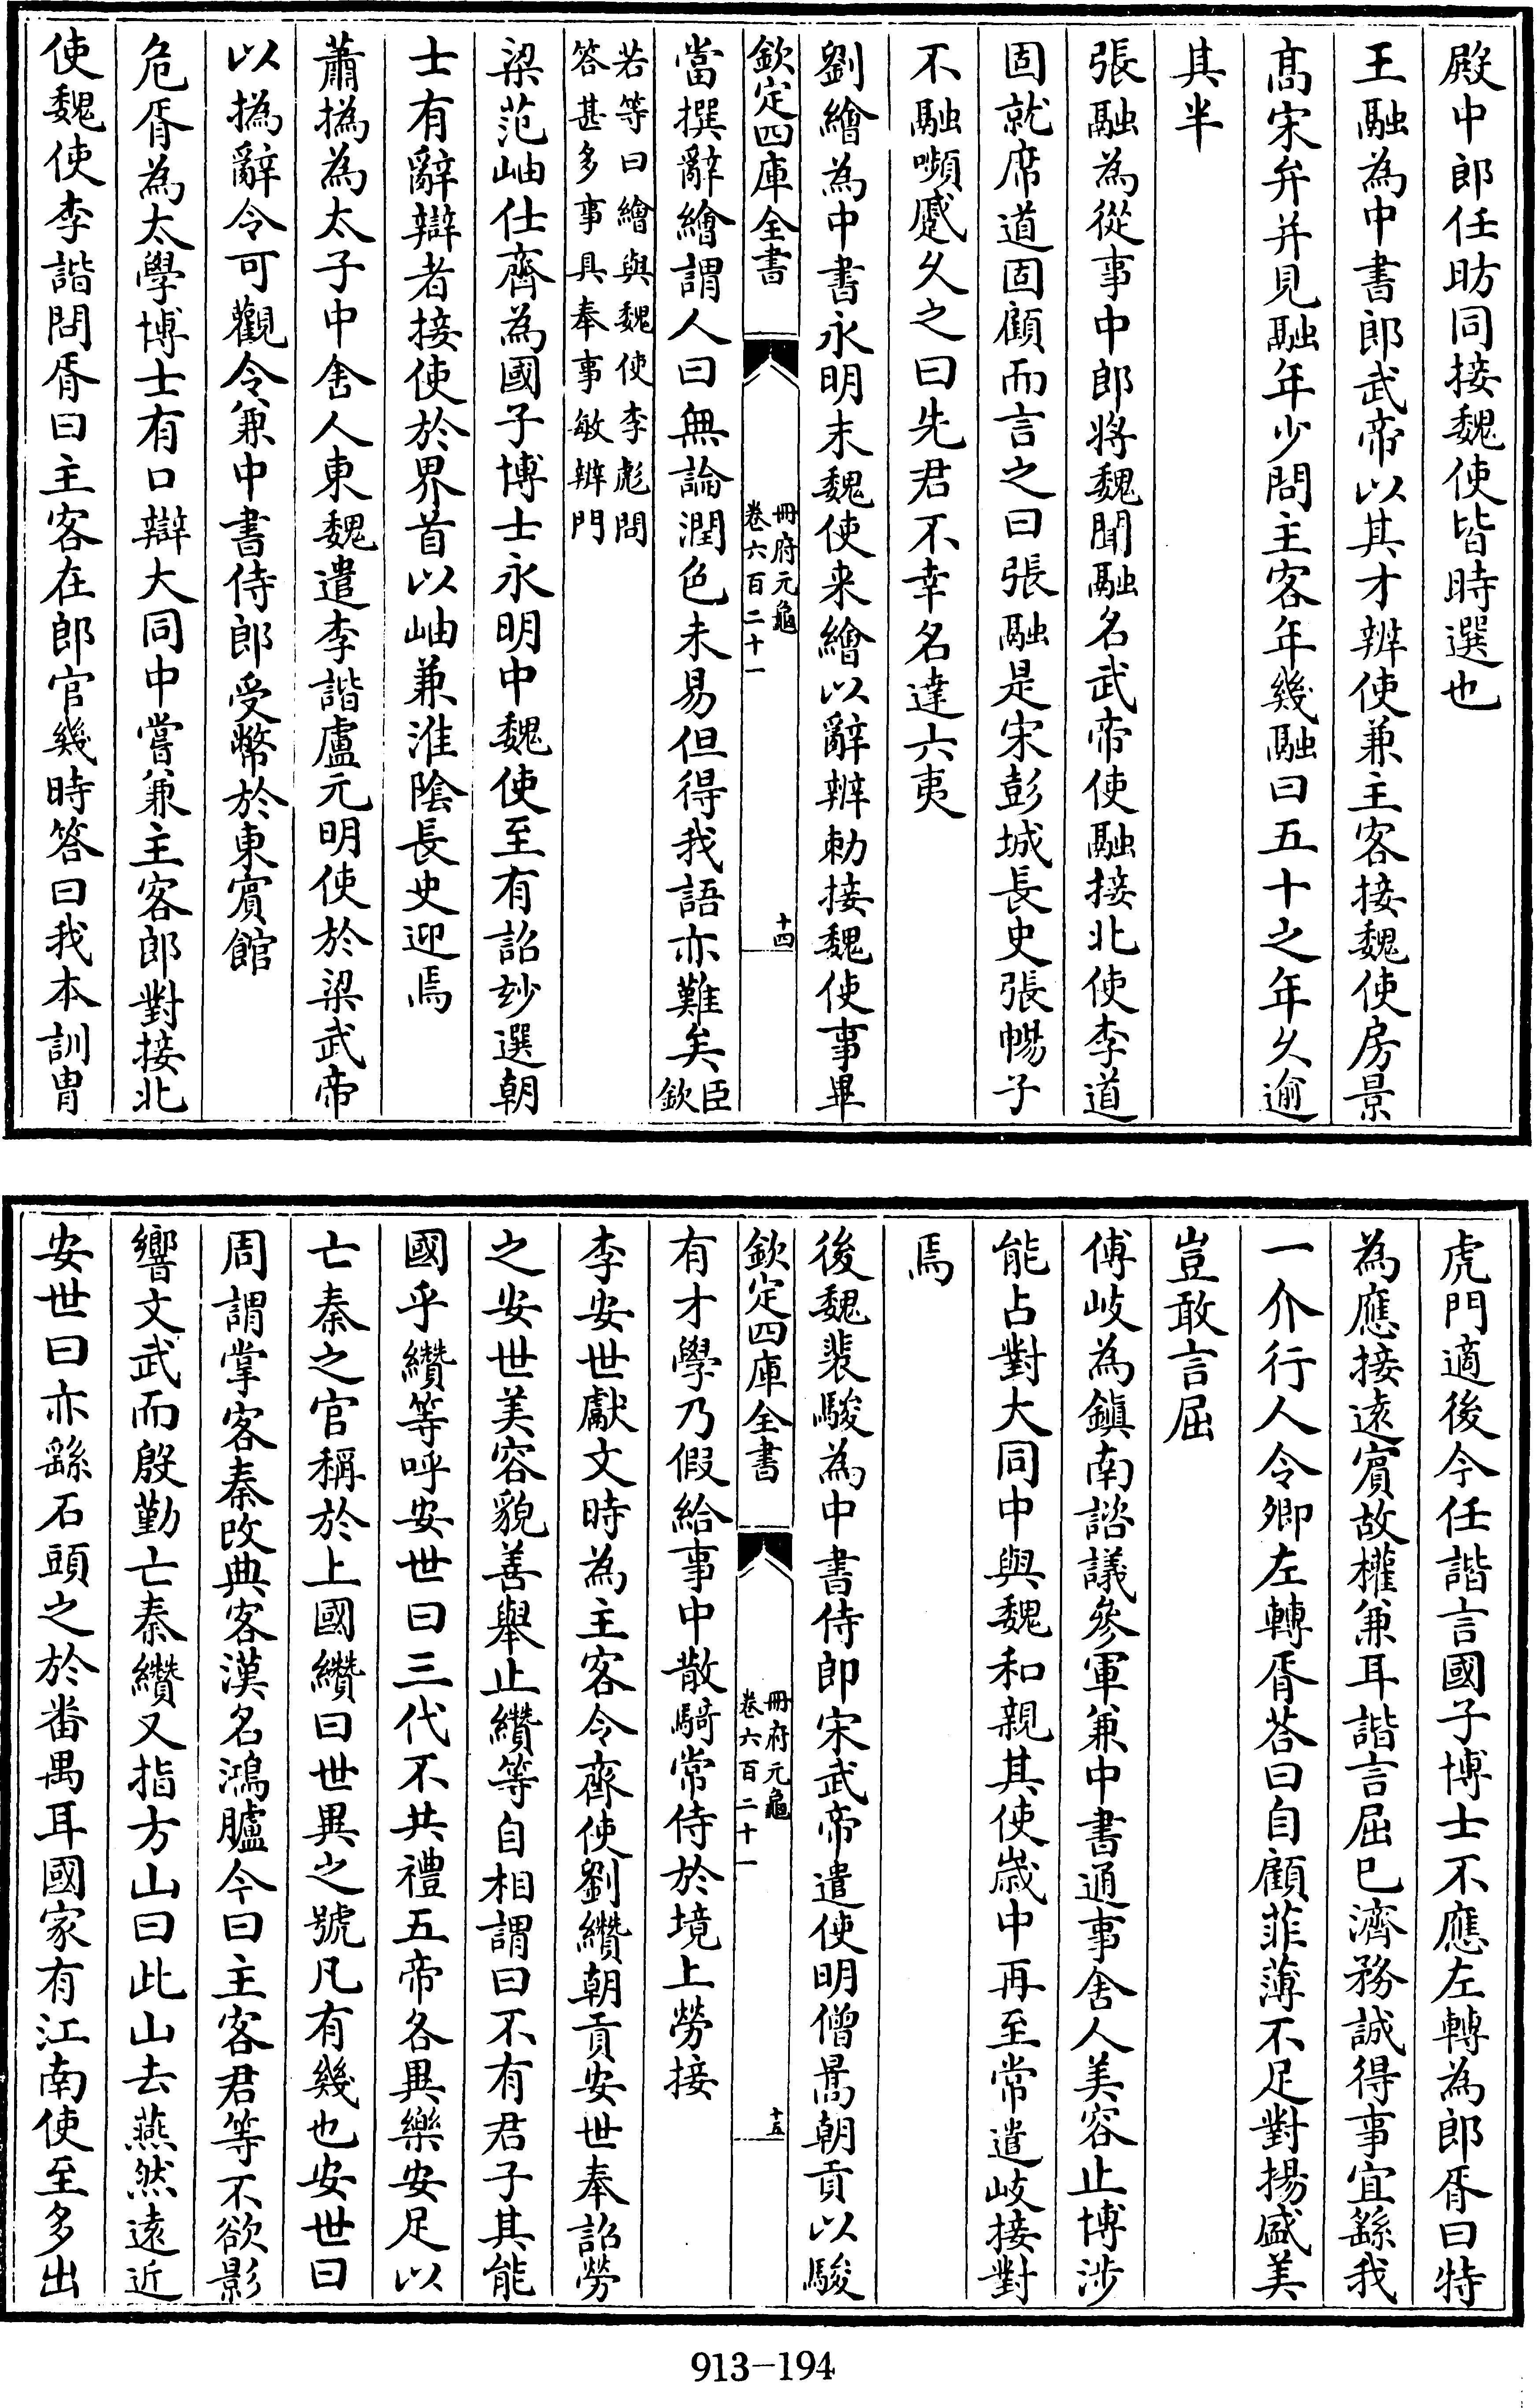 殿中郎任昉同接魏使皆時選也
王融為中書郎武帝以其才辨使兼主客接魏使房景
高宋弁并見融年少問主客年幾融曰五十之年久逾
其半
張融為從事中郎將魏聞融名武帝使融接北使李道
固就席道固顧而言之曰張融是宋彭城長史張暢子
不融嚬蹙久之曰先君不幸名達六夷
劉繪為中書永明末魏使来繪以辭辨勅接魏使事畢
欽定四庫全書
冊府元龜
卷六百二十一
十四
當撰辭繪謂人曰無論潤色未易但得我語亦難矣臣欽
若等曰繪與魏使李彪問
答甚多事具奉事敏辨門
梁范岫仕齊為國子博士永明中魏使至有詔玅選朝
士有辭辯者接使於界首以岫兼淮陰長史迎焉
蕭撝為太子中舍人東魏遣李諧盧元明使於梁武帝
以撝辭令可觀令兼中書侍郎受幣於東賓館
危胥為太學博士有口辯大同中嘗兼主客郎對接北
使魏使李諧問胥曰主客在郎官幾時答曰我本訓胄
虎門適後今任諧言國子博士不應左轉為郎胥曰特
為應接遠賓故權兼耳諧言屈巳濟務誠得事宜繇我
一介行人令卿左轉胥荅曰自顧菲薄不足對揚盛美
豈敢言屈
傅岐為鎮南諮議參軍兼中書通事舍人美容止博涉
能占對大同中與魏和親其使歲中再至常遣岐接對
焉
後魏裴駿為中書侍郎宋武帝遣使明僧暠朝貢以駿
欽定四庫全書
冊府元龜
卷六百二十一
十五
有才學乃假給事中散騎常侍於境上勞接
李安世獻文時為主客令齊使劉纘朝貢安世奉詔勞
之安世美容貌善舉止纘等自相謂曰不有君子其能
國乎纘等呼安世曰三代不共禮五帝各異樂安足以
亡秦之官稱於上國纘曰世異之號凡有幾也安世曰
周謂掌客秦改典客漢名鴻臚今曰主客君等不欲影
響文武而殷勤亡秦纘又指方山曰此山去燕然遠近
安世曰亦繇石頭之於番禺耳國家有江南使至多出
913-194